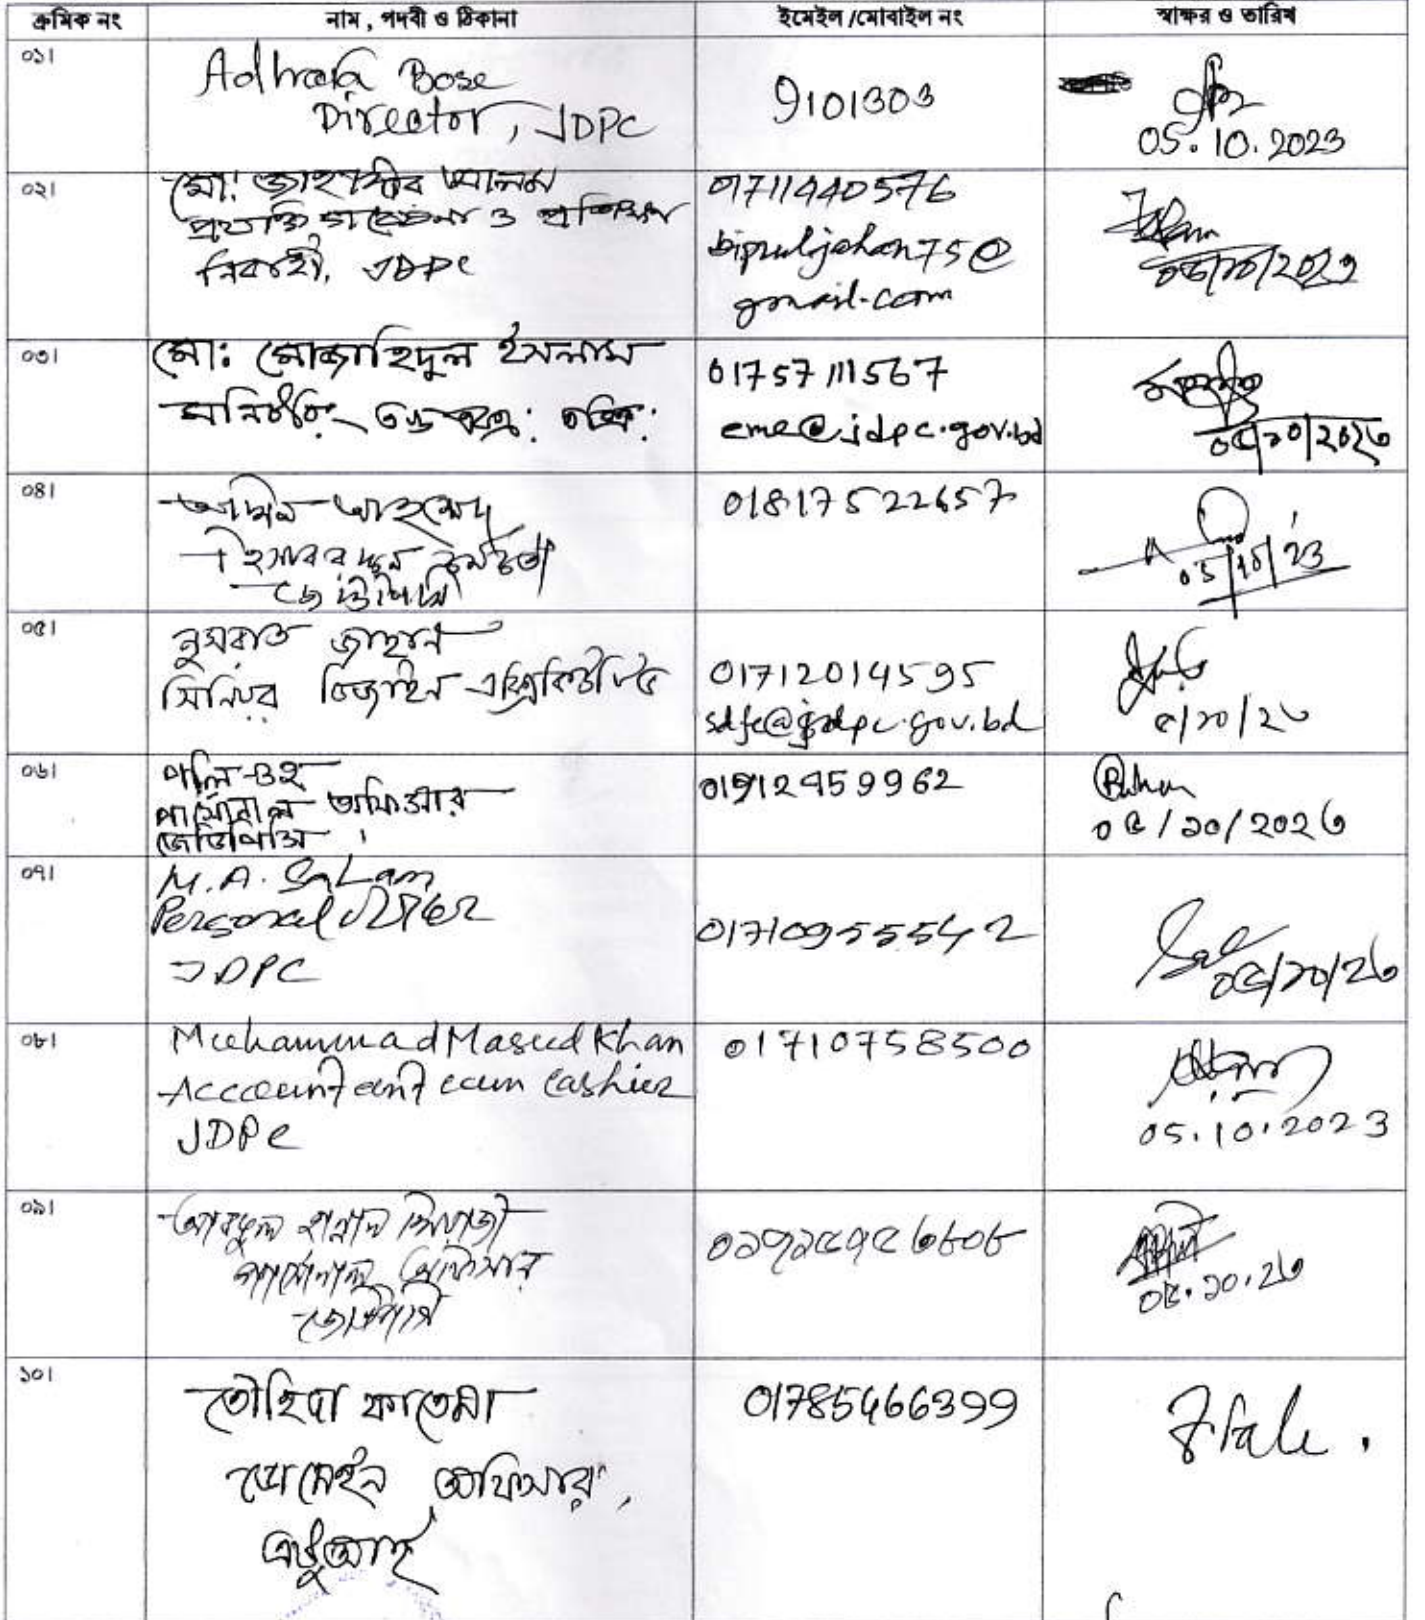 ক্রমিক নং
নাম, পদবী ও ঠিকানা
ইমেইল/মোবাইল নং
স্বাক্ষর ও তারিখ
০১।
Bose
Director, JDPC
9101303
05.10.2023
০২।
মো: জাহাঙ্গীর আলম
ও প্রশিক্ষণ
নির্বাহী, JDPC
01711440576
bipuljahan75@
gmail.com
০৩।
মো: মোজাহিদুল ইসলাম
01757111567
eme@jdpc.gov.bd
০৫/১০/২০২৩
০৪।
আহমেদ
হিসাবরক্ষন কর্মকর্তা
জেডিপিসি
01817522657
05/10/23
০৫।
নুসরাত জাহান
সিনিয়র ডিজাইন এক্সিকিউটিভ
01712014595
sdfe@jdpc.gov.bd
৫/১০/২৩
০৬।
পার্সোনাল অফিসার
জেডিপিসি
01912959962
০৫/১০/২০২৩
০৭।
M.A. Salam
Personal অফিসার
JDPC
01710955542
০৫/১০/২৩
০৮।
Muhammad Masud Khan
Accountant cum Cashier
JDPC
01710758500
05.10.2023
০৯।
আবদুল হান্নান সিরাজী
পার্সোনাল অফিসার
জেডিপিসি
০১৭১৫৭৫৩৮০৮
০৫.১০.২৩
১০।
তৌহিদা ফাতেমা
অফিসার,
01785466399